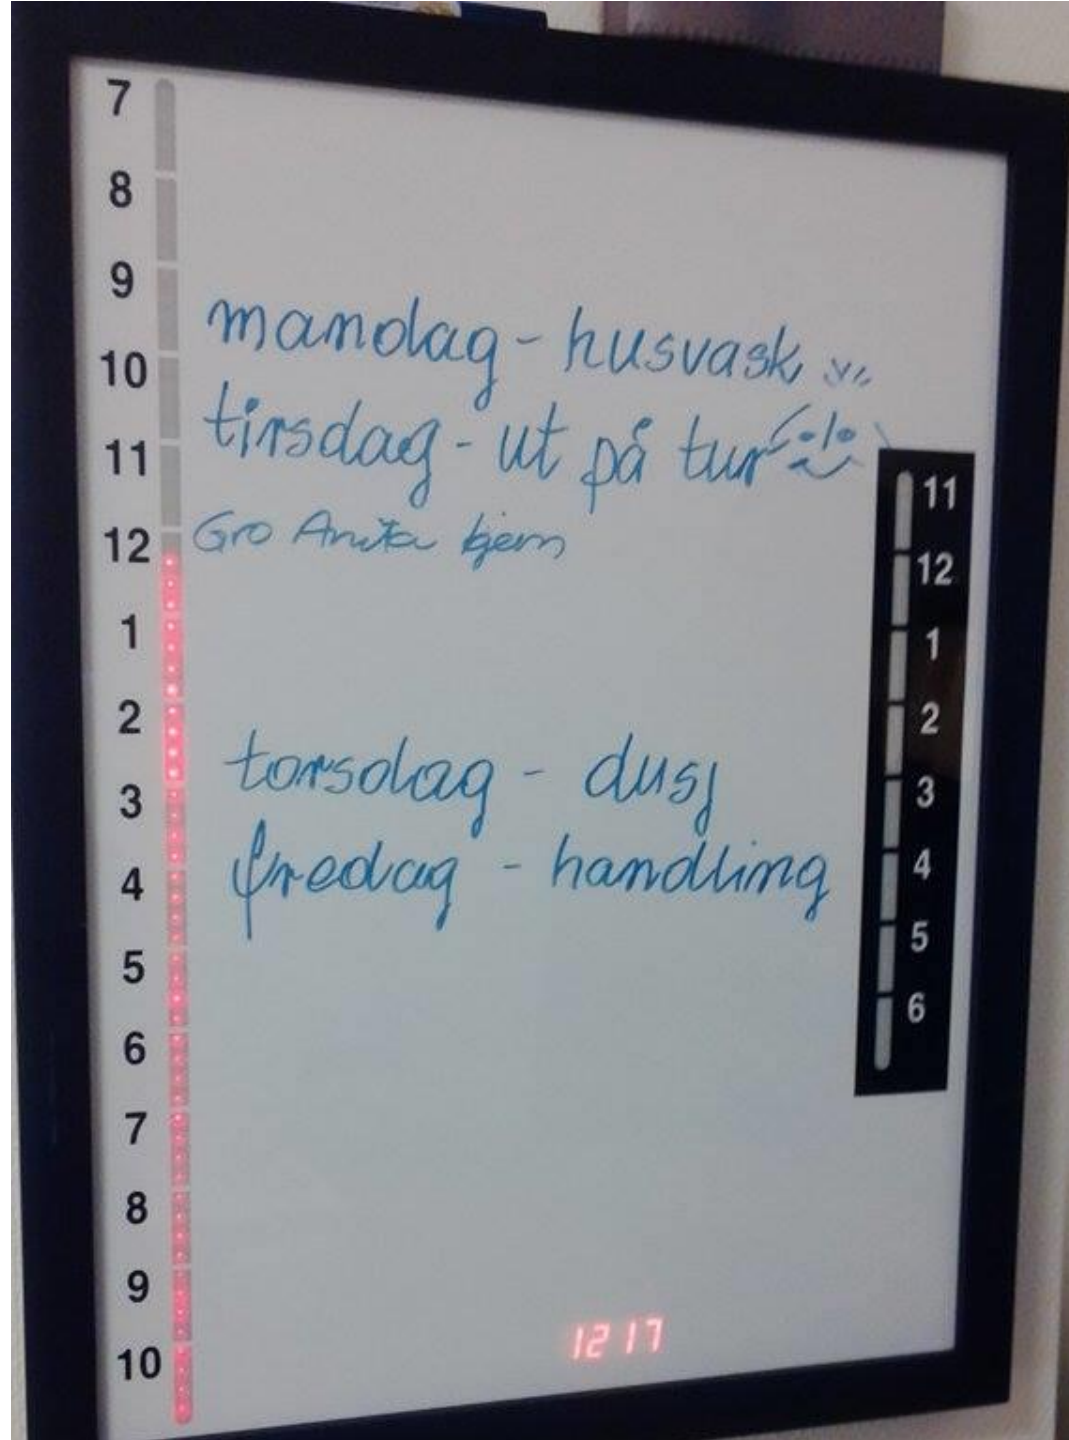 7
8
9
10
11
12
1
2
3
4
5
6
7
8
9
10
mandag - husvask
tirsdag - ut på tur
Gro Anita hjem
torsdag - dusj
fredag - handling
11
12
1
2
3
4
5
6
12 17